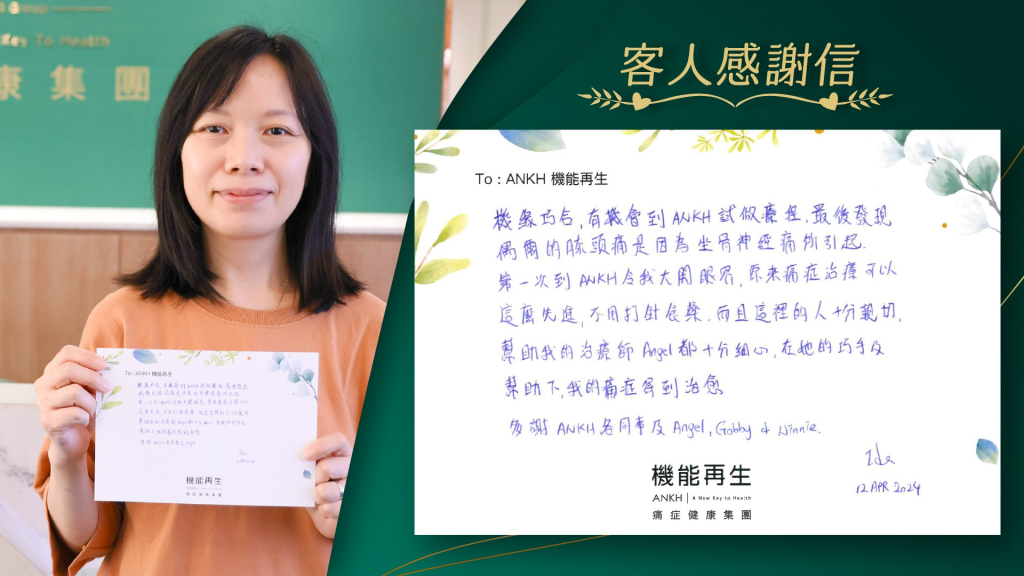 Key To Health
康集團
客人感謝信
To : ANKH 機能再生
機緣巧合,有機會到 ANKH 試做療程.最後發現
偶爾的膝頭痛是因為坐骨神經痛所引起.
第一次到 ANKH 令我大開眼界,原來痛症治療可以
這麼先進,不用打針食藥.而且這裡的人十分親切,
幫助我的治療師 Angel 都十分細心,在她的巧手及
幫助下,我的痛症得到治愈
多謝 ANKH 各同事及 Angel, Gabby & Winnie.
Ida
12 APR 2024
機能再生
ANKH | A New Key to Health
痛症健康集團
To : ANKH 機能再生
機能再生
痛症健康集團